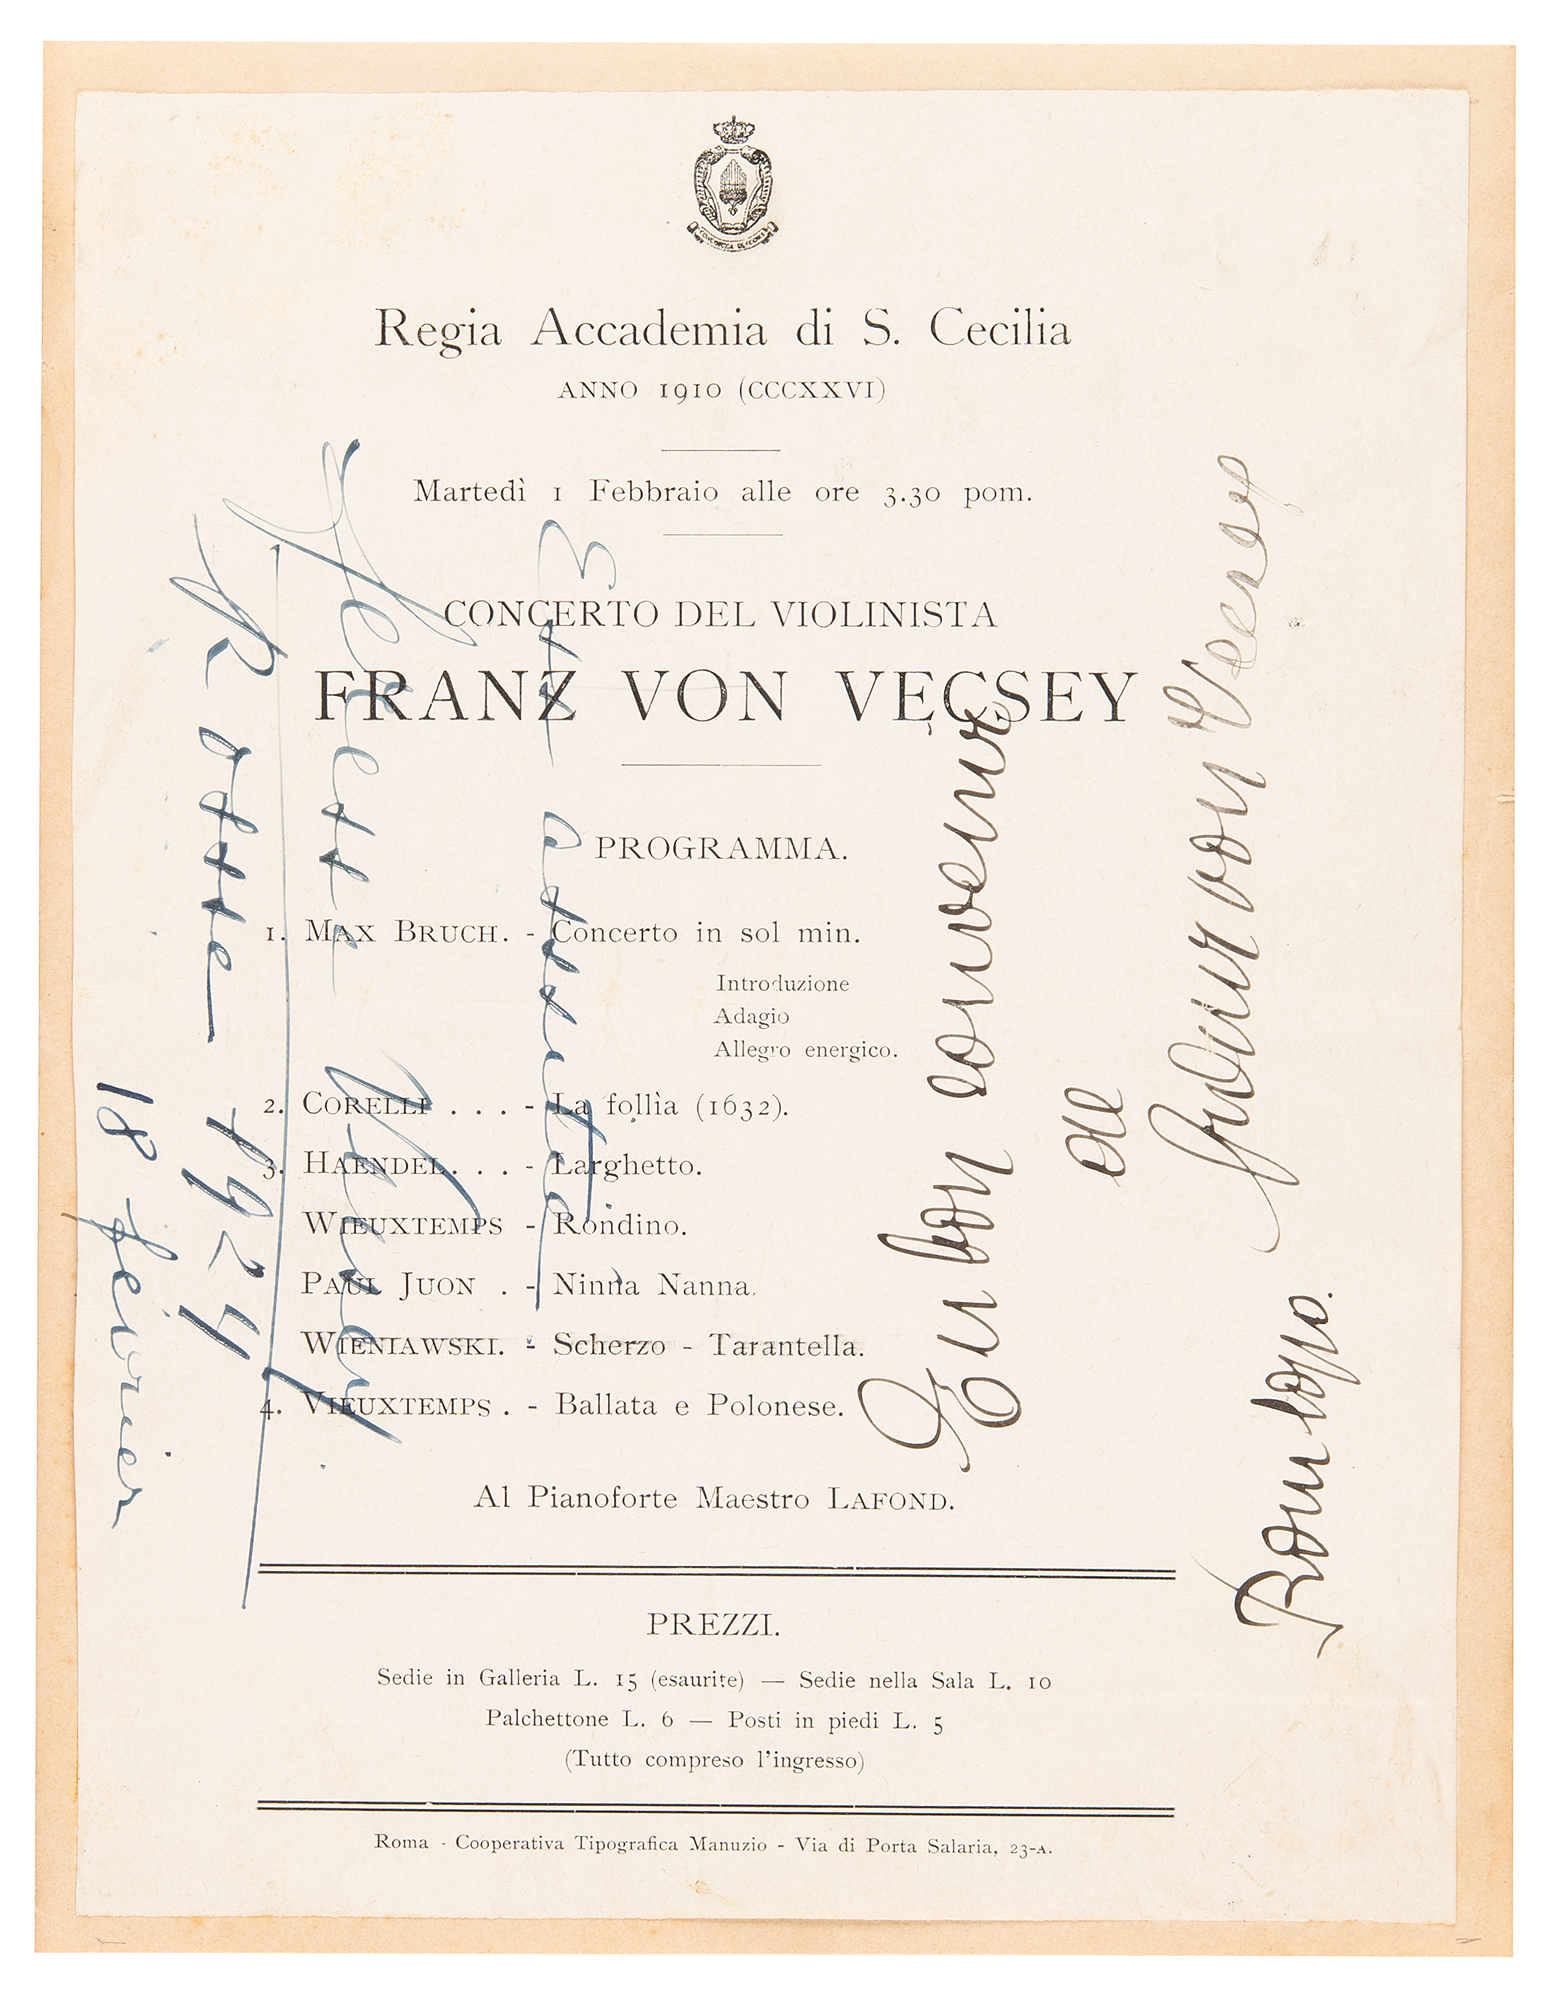 Regia Accademia di S. Cecilia
ANNO 1910 (CCCXXVI)
Martedì 1 Febbraio alle ore 3.30 pom.
CONCERTO DEL VIOLINISTA
FRANZ VON VECSEY
PROGRAMMA.
1. MAX BRUCH. - Concerto in sol min.
Introduzione
Adagio
Allegro energico.
2. CORELLI . . . - La follìa (1632).
3. HAENDEL . . . - Larghetto.
WIEUXTEMPS - Rondino.
PAUL JUON . - Ninna Nanna.
WIENIAWSKI. - Scherzo - Tarantella.
4. VIEUXTEMPS . - Ballata e Polonese.
Al Pianoforte Maestro LAFOND.
PREZZI.
Sedie in Galleria L. 15 (esaurite) — Sedie nella Sala L. 10
Palchettone L. 6 — Posti in piedi L. 5
(Tutto compreso l'ingresso)
Roma - Cooperativa Tipografica Manuzio - Via di Porta Salaria, 23-A.
En bon souvenir
de
von Vecsey
Rom 1910.
1924
18 février